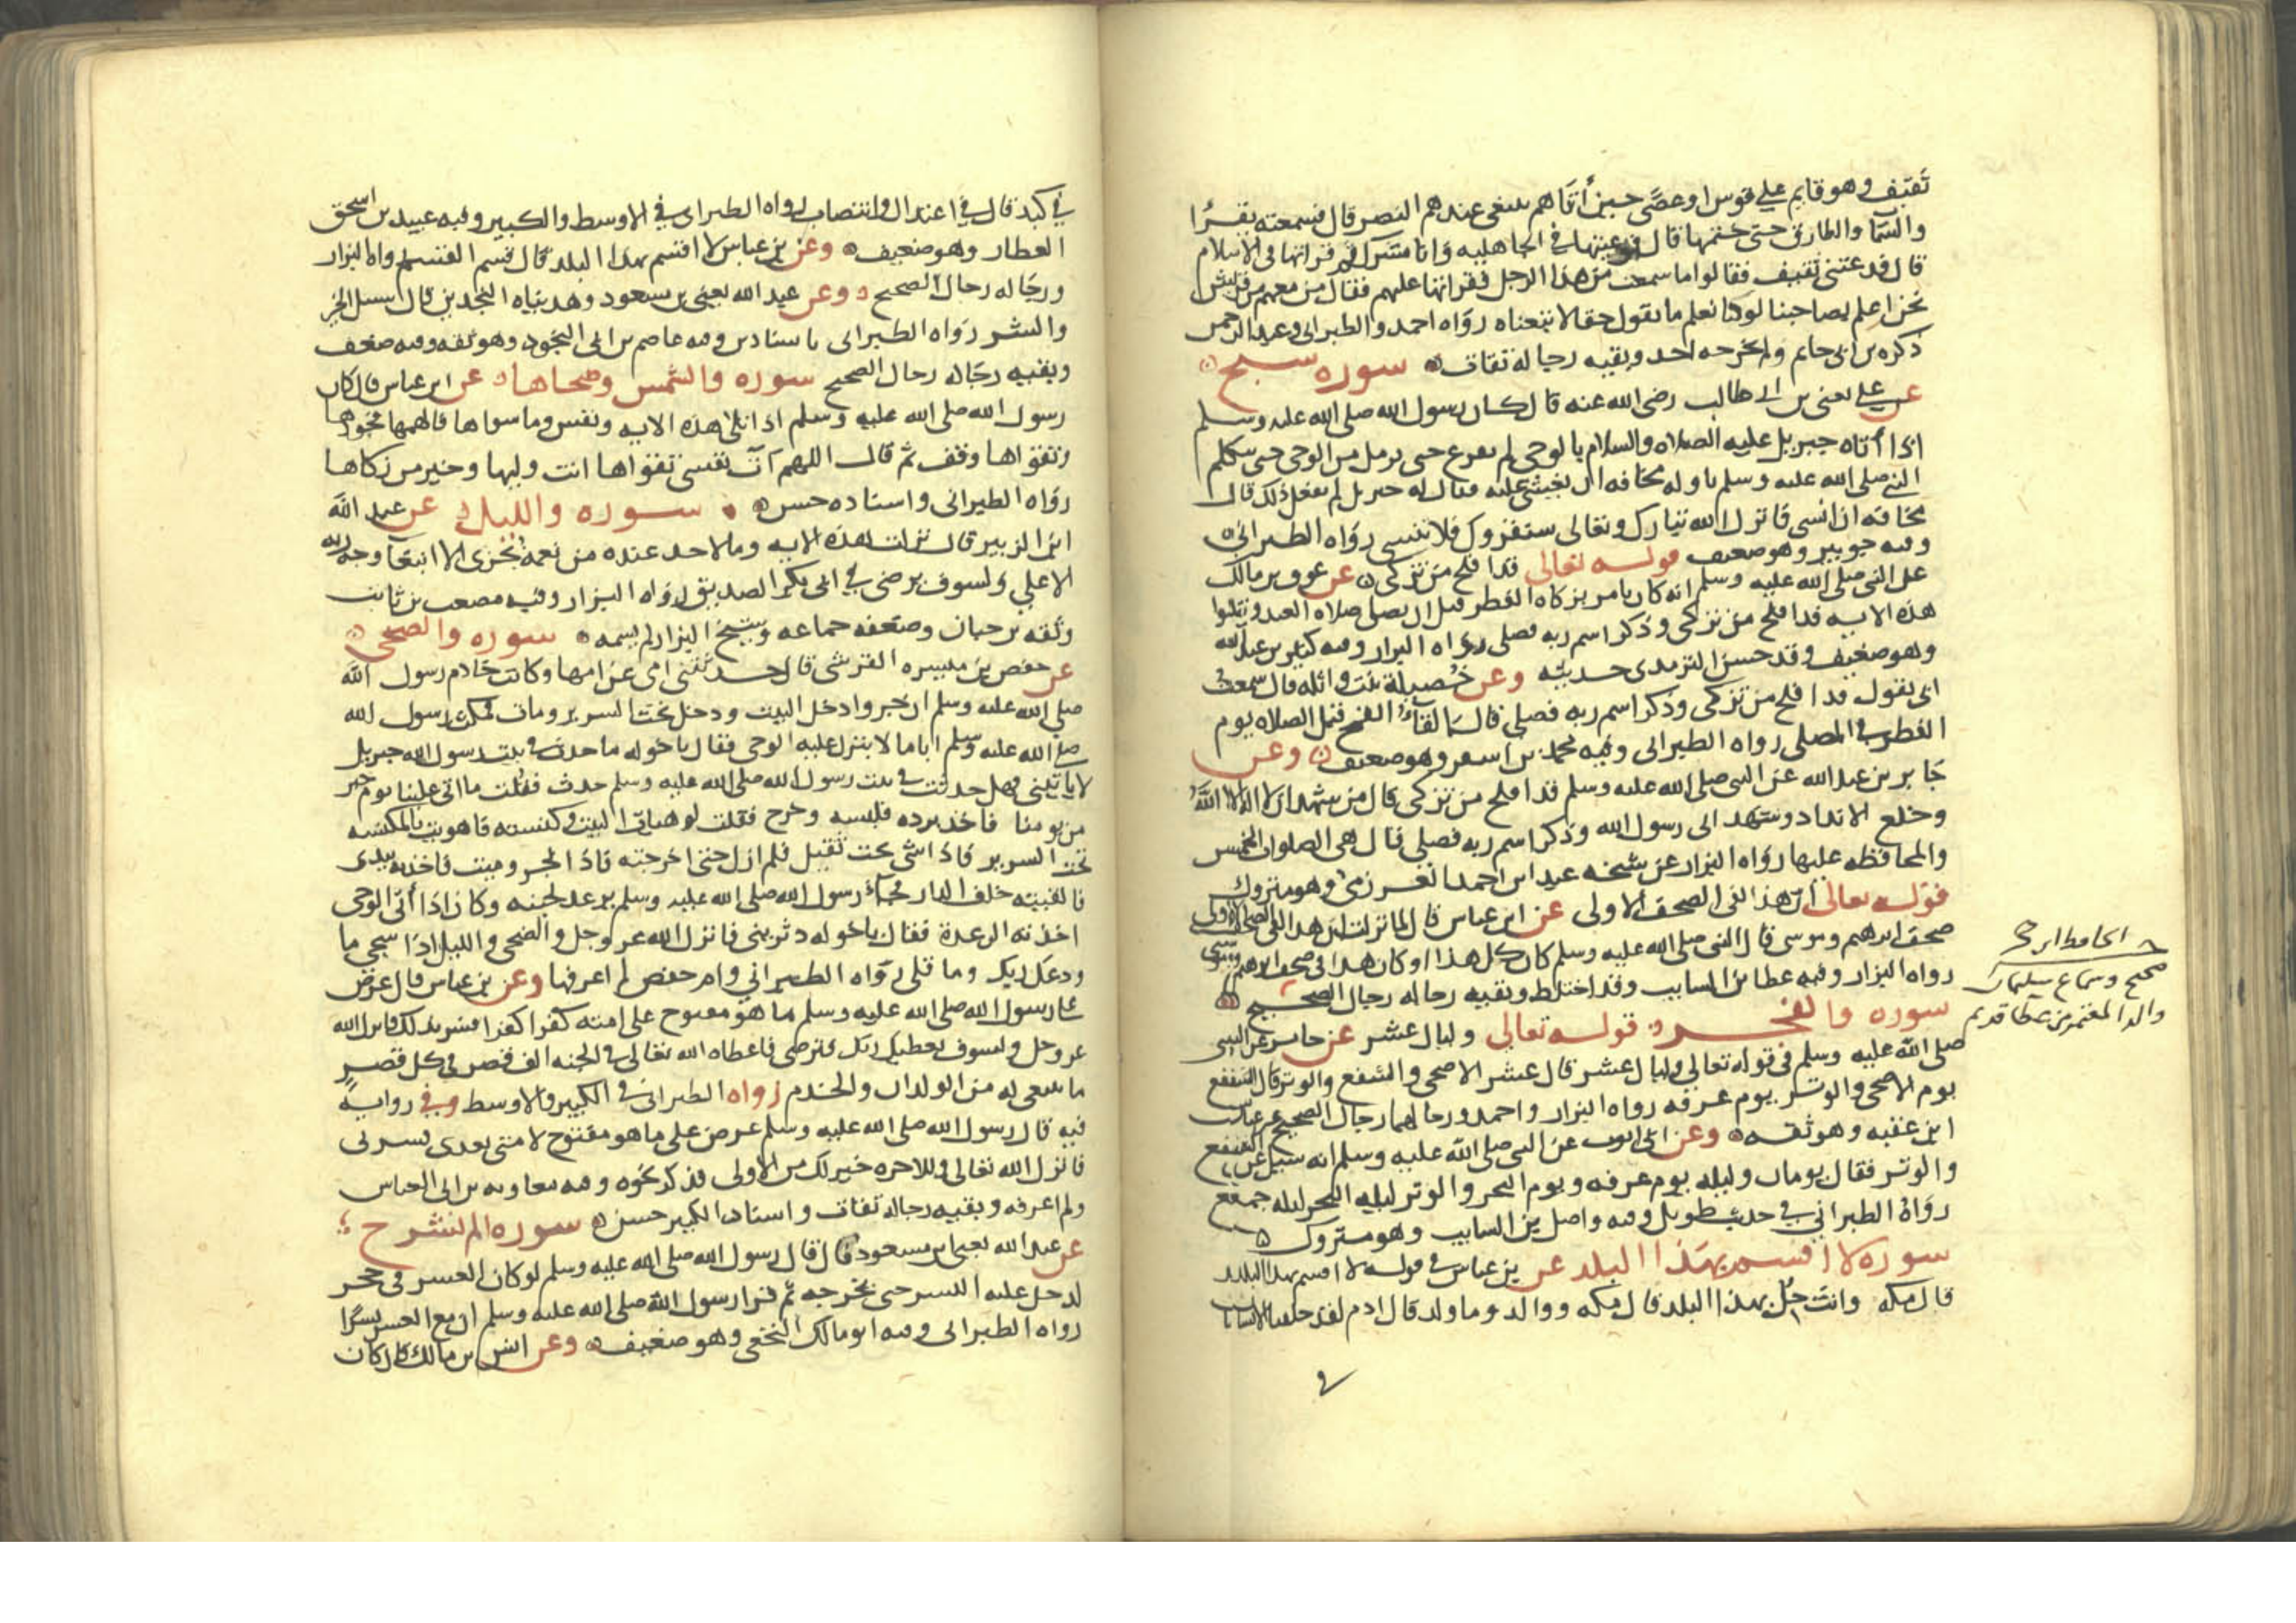 ثقيف وهو قايم على قوس او عصى حين أتاهم يبتغي عندهم النصر قال فسمعته يقرأ
والسما والطارق حتى ختمها قال فوعيتها في الجاهليه وانا مشرك ثم قرانها في الاسلام
قال فدعتني ثقيف فقالوا ما سمعت من هذا الرجل فقراتها عليهم فقال من معهم من قريش
نحن اعلم بصاحبنا لو كنا نعلم ما يقول حقا لاتبعناه رواه احمد والطبراني وعبد الرحمن
ذكره بن ابي حاتم ولم يجرحه احد وبقيه رجاله ثقات سوره سبح
عن علي يعني بن ابي طالب رضي الله عنه قال كان رسول الله صلى الله عليه وسلم
اذا أتاه جبريل عليه الصلاه والسلام بالوحي لم يفرغ حتى يزمل من الوحي حتى يتكلم
النبي صلى الله عليه وسلم باوله مخافه ان يغشى عليه فقال له جبريل لم تفعل ذلك قال
مخافه ان انسى فانزل الله تبارك وتعالى سنقريك فلا تنسى رواه الطبراني
وفيه جويبر وهو ضعيف قوله تعالى قد افلح من تزكى عن عوف بن مالك
عن النبي صلى الله عليه وسلم انه كان يامر بزكاه الفطر قبل ان يصلي صلاه العيد ويتلوا
هذه الايه قد افلح من تزكى وذكر اسم ربه فصلى رواه البزار وفيه كثير بن عبد الله
وهو ضعيف وقد حسن الترمذي حديثه وعن خصيلة بنت واثله قال سمعت
ابي يقول قد افلح من تزكى وذكر اسم ربه فصلى قال القاء القمح قبل الصلاه يوم
الفطر في المصلى رواه الطبراني وفيه محمد بن اسقر وهو ضعيف وعن
جابر بن عبد الله عن النبي صلى الله عليه وسلم قد افلح من تزكى قال من شهد ان لا اله الا الله
وخلع الانداد وشهد اني رسول الله وذكر اسم ربه فصلى قال هي الصلوات الخمس
والمحافظه عليها رواه البزار عن شيخه عباد بن احمد العرزمي وهو متروك
قوله تعالى ان هذا لفي الصحف الاولى عن ابن عباس قال لما نزلت ان هذا لفي الصحف الاولى
صحف ابرهيم وموسى قال النبي صلى الله عليه وسلم كان كل هذا او كان هذا في صحف ابرهيم وموسى
رواه البزار وفيه عطا بن السايب وقد اختلط وبقيه رجاله رجال الصحيح
الحافظ ابن حجر
صحيح وسماع سليمان
والد المعتمر من عطا قديم
سوره والفجر قوله تعالى وليال عشر عن جابر عن النبي
صلى الله عليه وسلم في قوله تعالى وليال عشر قال عشر الاضحى والشفع والوتر قال الشفع
يوم الاضحى والوتر يوم عرفه رواه البزار واحمد ورجالهما رجال الصحيح غير عياش
ابن عقبه وهو ثقه وعن ابي ايوب عن النبي صلى الله عليه وسلم انه سيل عن الشفع
والوتر فقال يومان وليله يوم عرفه ويوم النحر والوتر ليله النحر ليله جمع
رواه الطبراني في حديث طويل وفيه واصل بن السايب وهو متروك
سوره لا اقسم بهذا البلد عن بن عباس في قوله لا اقسم بهذا البلد
قال مكه وانت حل بهذا البلد قال مكه ووالد وما ولد قال ادم لقد خلقنا الانسان
في كبد قال في اعتدال وانتصاب رواه الطبراني في الاوسط والكبير وفيه عبيد بن اسحق
العطار وهو ضعيف وعن بن عباس لا اقسم بهذا البلد قال قسم القسم رواه البزار
ورجاله رجال الصحيح وعن عبد الله يعني بن مسعود وهديناه النجدين قال سبيل الخير
والشر رواه الطبراني باسنادين وفيه عاصم بن ابي النجود وهو ثقه وفيه ضعف
وبقيه رجاله رجال الصحيح سوره والشمس وضحاها عن ابن عباس قال كان
رسول الله صلى الله عليه وسلم اذا تلى هذه الايه ونفس وما سواها فالهمها فجورها
وتقواها وقف ثم قال اللهم آت نفسي تقواها انت وليها وخير من زكاها
رواه الطبراني واسناده حسن سوره والليل عن عبد الله
ابن الزبير قال نزلت هذه الايه وما لاحد عنده من نعمه تجزى الا ابتغآ وجه ربه
الاعلى ولسوف يرضى في ابي بكر الصديق رواه البزار وفيه مصعب بن ثابت
وثقه بن حبان وضعفه جماعه وشيخ البزار لم يسمه سوره والضحى
عن حفص بن ميسره القرشي قال حدثتني امي عن امها وكانت خادم رسول الله
صلى الله عليه وسلم ان جبروا دخل البيت ودخل تحت السرير ومات فمكث رسول الله
صلى الله عليه وسلم اياما لا ينزل عليه الوحي فقال ياخوله ما حدث في بيت رسول الله جبريل
لا ياتيني فهل حدث في بيت رسول الله صلى الله عليه وسلم حدث فقلت ما اتى علينا يوم خير
من يومنا فاخذ برده فلبسه وخرج فقلت لو هيات البيت وكنسته فاهويت بالمكنسه
تحت السرير فاذا شي تحت ثقيل فلم ازل حتى اخرجته فاذا الجرو ميت فاخذته بيدي
فالقيته خلف الدار فجآ رسول الله صلى الله عليه وسلم يرعد لحيته وكان اذا أتى الوحي
اخذته الرعدة فقال ياخوله دثريني فانزل الله عز وجل والضحى والليل اذا سجى ما
ودعك ربك وما قلى رواه الطبراني وام حفص لم اعرفها وعن بن عباس قال عرض
على رسول الله صلى الله عليه وسلم ما هو مفتوح على امته كفرا كفرا فسر بذلك فانزل الله
عز وجل ولسوف يعطيك ربك فترضى فاعطاه الله تعالى في الجنه الف قصر في كل قصر
ما ينبغي له من الولدان والخدم رواه الطبراني في الكبير والاوسط وفي روايه
فيه قال رسول الله صلى الله عليه وسلم عرض علي ما هو مفتوح لامتي بعدي فسرني
فانزل الله تعالى وللاخره خير لك من الاولى فذكر نحوه وفيه معاويه بن ابي العباس
ولم اعرفه وبقيه رجاله ثقات واسناد الكبير حسن سوره الم نشرح
عن عبد الله يعني ابن مسعود قال قال رسول الله صلى الله عليه وسلم لو كان العسر في جحر
لدخل عليه اليسر حتى يخرجه ثم قرا رسول الله صلى الله عليه وسلم ان مع العسر يسرا
رواه الطبراني وفيه ابو مالك النخعي وهو ضعيف وعن انس بن مالك قال كان